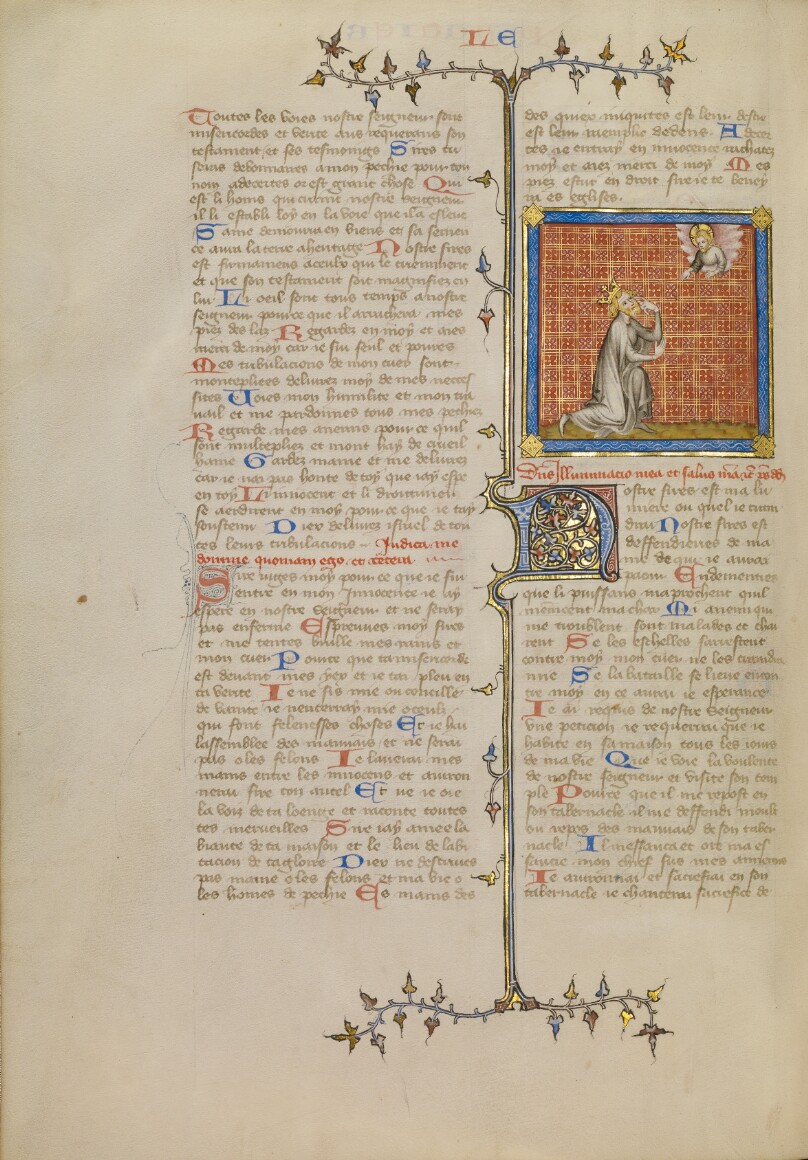 LE
Toutes les voies nostre seigneur sont
misericordes et verite aus requerans son
testament et ses tesmoings Sires tu
seras debonaires a mon pechie pour ton
nom adecertes or est grant chose Qui
est li homs qui crient nostre seigneur
il li establi loy en la voie que il a esleue
Same demourra en biens et sa semen
ce aura la terre a heritage Nostre sires
est firmamens a ceulx qui le criement
et que son testament soit magnifiez en
lui Li oeil sont tous temps a nostre
seigneur pour ce que il arrachera mes
piez des laz Regardez en moy et aies
merci de moy car ie sui seul et poures
Mes tribulacions de mon cuer sont
montepliees delivrez moy de mes necessi
sites Voies mon humilite et mon tra
uail et me pardonnes tous mes pechiez
Regarde mes anemis pour ce quil
sont multepliez et mont hay de crueil
haine Gardez mame et me delivrez
car ie nai pas honte de toy que iay espe
en toy Li innocent et li droiturier
se aerdirent en moy pour ce que ie tay
soustenu Diex delivrez israel de tou
tes leurs tribulacions Iudica me
domine quoniam ego et cetera
Sire iuges moy pour ce que ie sui
entre en mon Innocence ie ay
espere en nostre Seigneur et ne seray
pas enferme Esprouues moy sires
et me temptes brulle mes rains et
mon cuer Pource que ta misericorde
est deuant mes yex et ie tai pleu en
ta verite Ie ne sis mie ou concille
de vanite ie nenterray mie o ceulz
qui font felenesses choses Et ie hai
lassemblee des mauuais et ne serai
pas o les felons Ie laueray mes
mains entre les innocens et auiron
nerai sire ton autel Et ue ie oie
la voiz de ta loenge et raconte toutes
tes merueilles Sire iay amee la
biaute de ta maison et le lieu de labi
tacion de ta gloire Diex ne destruies
pas mame o les felons et ma vie o
les homes de pechie Es mains des
des quiex iniquites est leur destre
est leur raemplie de dons Adecer
tes ie entray en innocence rachatez
moy et aiez merci de moy Mes
piez estut en droit sire ie te beney
ray es eglises.
Dns Illuminacio mea et salus mea
Nostre sires est ma lu
miere ou quel ie crem
drai Nostre sires est
deffenderres de ma
vie de qui ie aurai
paour Endementres
que li puissans maprochent quil
menicent ma char Mi anemi qui
me troublent sont malades et chai
rent Se les eschelles sarrestent
contre moy mon cuer ne les craindra
mie Se la bataille se lieue encon
tre moy en ce aurai ie esperance
Ie ai requis de nostre Seigneur
vne peticion ie requerrai que ie
habite en sa maison tous les iours
de ma vie Que ie voie la voulente
de nostre seigneur et visite son tem
ple Pource que il me repost en
son tabernacle il me deffendi moult
ou repos des mauuais de son taber
nacle Il et ore ma es
mon chief sus mes anemis
Ie auironnai et sacrefiai en son
tabernacle ie chanterai sacrefice de